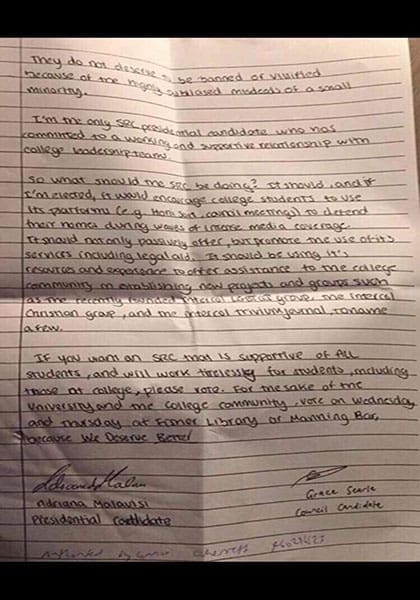 They do not deserve to be banned or vilified
because of the highly publicised misdeeds of a small
minority.
I'm the only SRC presidential candidate who has
committed to a working and supportive relationship with
college leadership teams.
So what should the SRC be doing? It should, and if
I'm elected, it would encourage college students to use
its platforms (e.g. Honi Soit, council meetings) to defend
their names during waves of intense media coverage.
It should not only passively offer, but promote the use of its
services including legal aid. It should be using it's
resources and experience to offer assistance to the college
community on establishing new projects and groups such
as the recently founded Intercol group, the Intercol
Christian group, and the Intercol Trivium journal, to name
a few.
If you want an SRC that is supportive of ALL
students, and will work tirelessly for students, including
those at college, please vote. For the sake of the
University and the College community, vote on Wednesday
and Thursday at Fisher Library or Manning Bar,
because We Deserve Better
Adriana Malavisi
Presidential Candidate
Grace Searle
Council Candidate
Authorised by